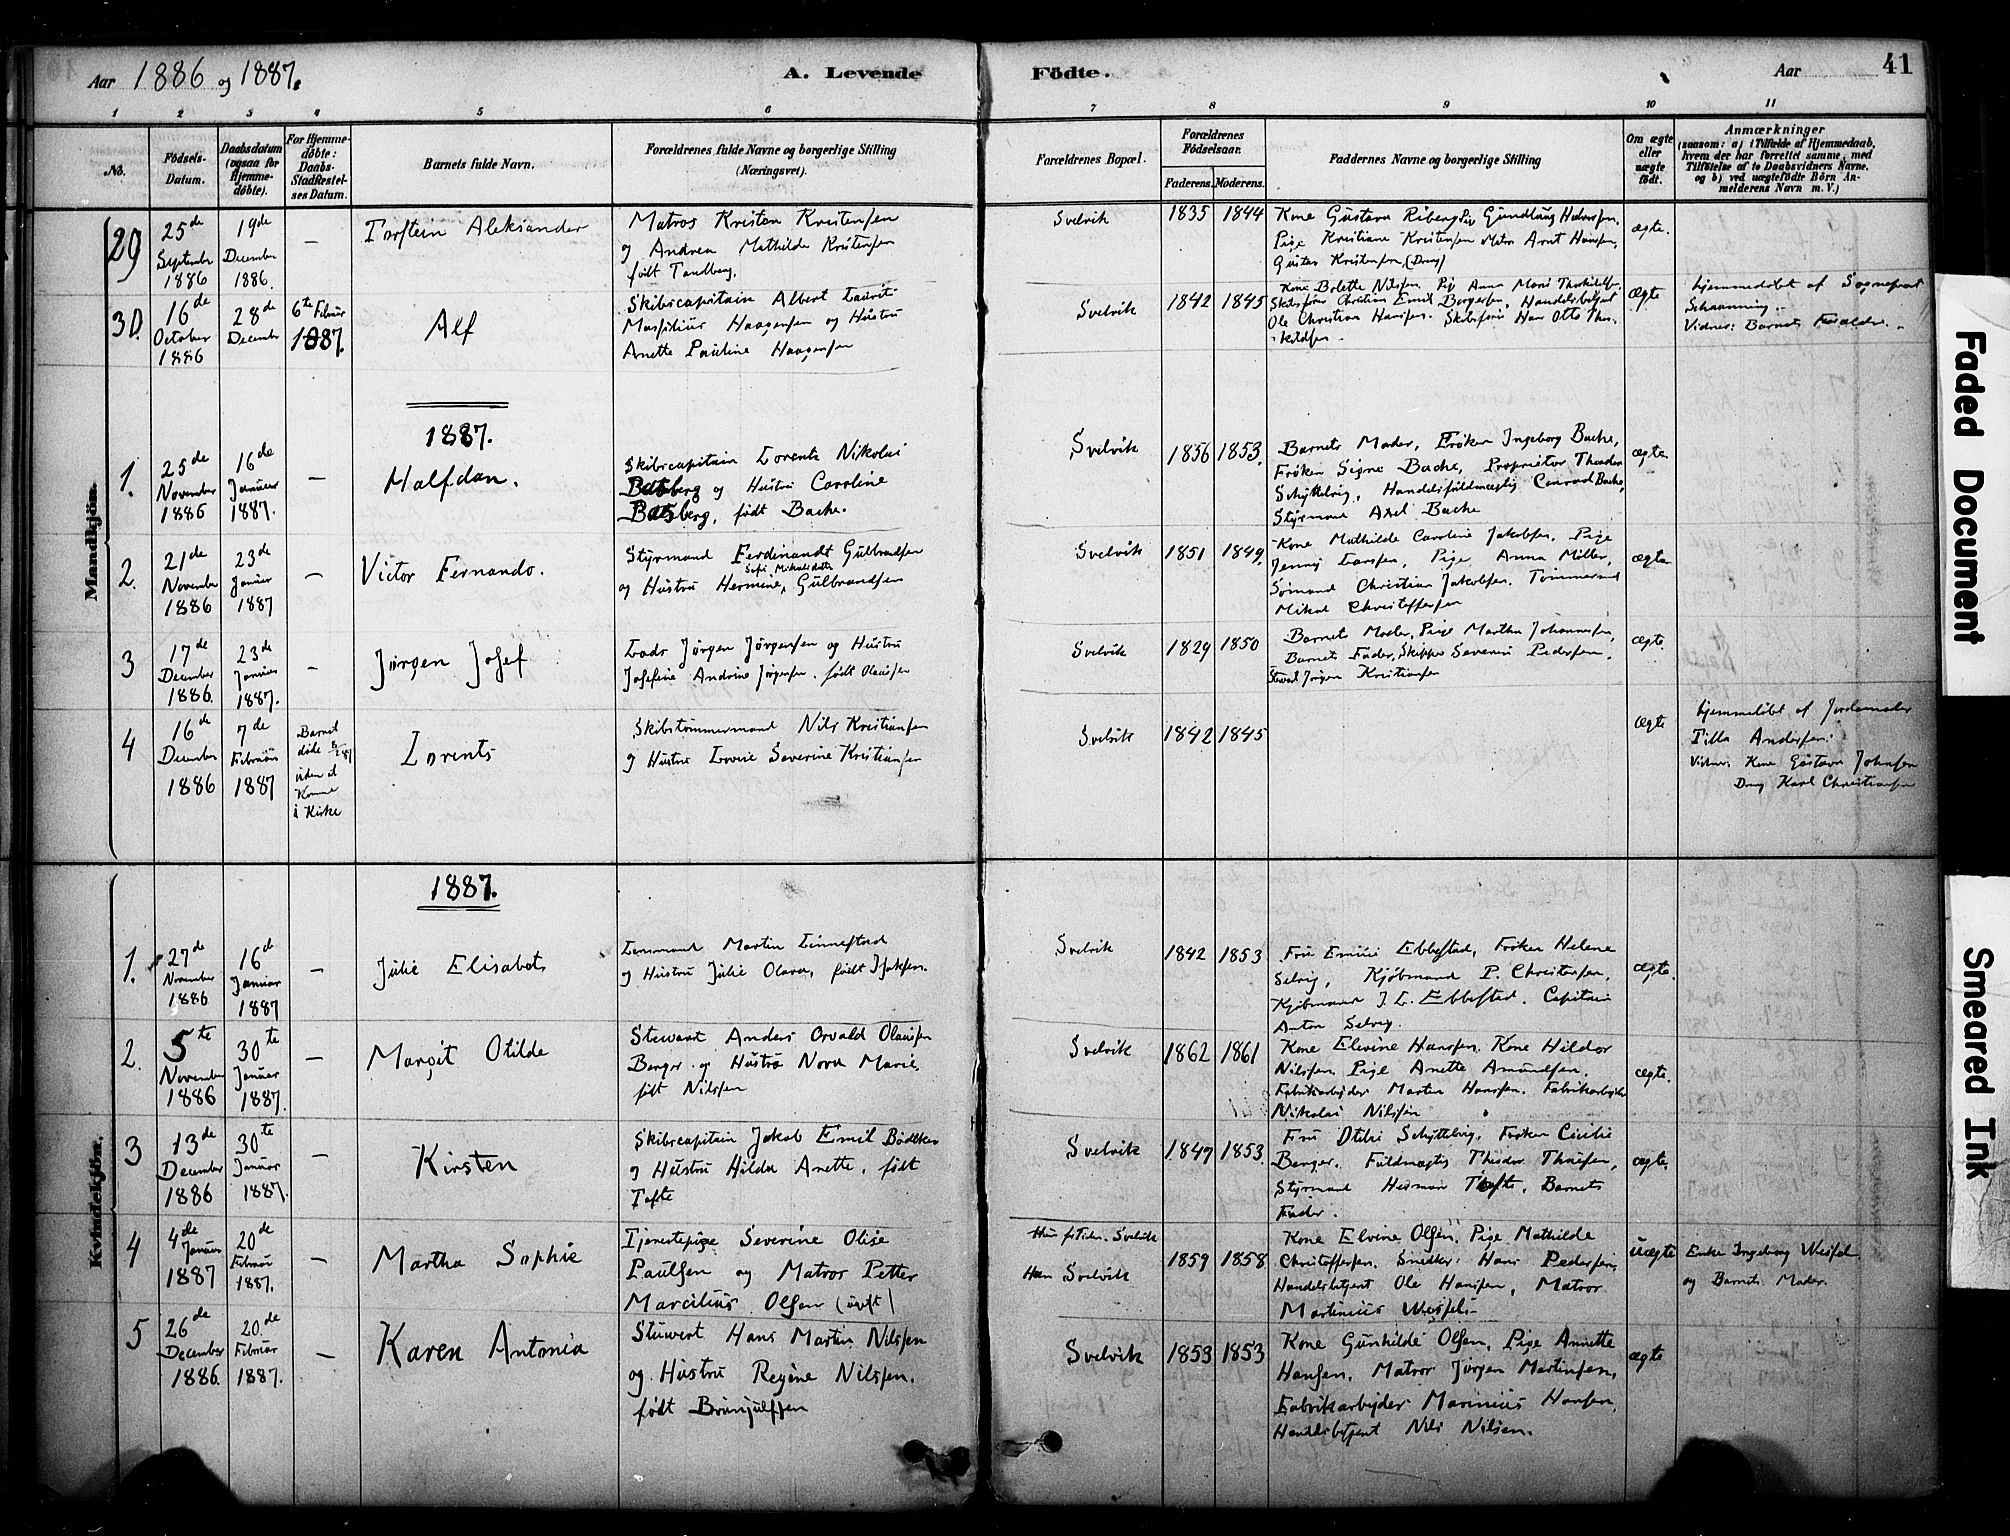 Aar 1886 og 1887.
A. Levende Födte.
Aar
41
1 2 3 4 5 6 7 8 9 10 11
No.
Födsels-Datum.
Daabsdatum (ogsaa for Hjemme-döbte).
For Hjemme-döbte: Daabs-Stadfestel-ses Datum.
Barnets fulde Navn.
Forældrenes fulde Navne og borgerlige Stilling (Næringsvei).
Forældrenes Bopæl.
Forældrenes Födselsaar.
Faderens. Moderens.
Faddernes Navne og borgerlige Stilling
Om ægte eller uægte födt.
Anmærkninger
(saasom: a) i Tilfælde af Hjemmedaab,
hvem der har forrettet samme, med
Tilföielse af to Daabsvidners Navne,
og b) ved uægtefödte Börn An-
melderens Navn m. V.)
Mandkjön.
29
25de September 1886
19de December 1886.
–
Torstein Aleksander
Matros Kristen Kristensen
og Andrea Mathilde Kristensen
født Tandberg.
Svelvik
1835 1844
Kone Gustava Riberg Pige Gundlaug Halvorsen,
Pige Kristiane Kristensen Matros Arnt Hansen,
Gustav Kristensen (Dreng)
ægte.
30.
16de October 1886
28de December
6te Februar 1887.
Alf
Skibscapitain Albert Laurit
Haagensen og Hustru
Anette Pauline Haagensen
Svelvik
1842 1845
Kone Bolette Nilsen, Pige Anna Marie
Skibsfører Christian Emil Borgersen, Handelsbetjent
Ole Christian Hansen. Skibsfører Hans Otto
Ægte
hjemmedøbt af Sogneprest
Schaanning.
Vidner: Barnets Forældre.
1887.
1.
25de November 1886
16de Januar 1887.
–
Halfdan.
Skibscapitain Lorentz Nikolai
Batsberg og Hustru Caroline
Batsberg, født Bache.
Svelvik
1856 1853.
Barnets Moder, Frøken Ingeborg Bache,
Frøken Signe Bache, Proprietær Theodor
Schytteløig, Handelsfuldmægtig Conrad Bache,
Styrmand Axel Bache
ægte
2.
21de November 1886
23de Januar 1887
–
Victor Fernando.
Styrmand Ferdinandt Gulbrandsen
og Hustru Hermine, Gulbrandsen
Svelvik
1851 1849.
Kone Mathilde Caroline Jakobsen, Pige
Jenny Larssen, Pige Anna Møller,
Sømand Christian Jakobsen. Tømmermand
Mikal Christoffersen
ægte
3
17de December 1886.
23de Januar 1887.
–
Jørgen Josef
Lods Jørgen Jørgensen og Hustru
Josefine Andrine Jørgensen. født Olausen
Svelvik
1829 1850
Barnets Moder, Pige Martha Johannesen,
Barnets Fader, Skipper Severin Pedersen,
Stewart Jørgen Kristiansen
ægte
4
16de December 1886
7de Februar 1887
Barnet døde 8/2 87 uden at Komme i Kirke
Lorents
Skibstømmermand Nils Kristiansen
og Hustru Lovise Severine Kristiansen
Svelvik
1842 1845
Ægte
hjemmedøbt af Jordemoder
Tilla Andersen.
Vidner: Kone Gustava Johnsen
Dreng Karl Christiansen
Kvindekjön.
1887.
1.
27de November 1886
16de Januar 1887
–
Julie Elisabet
Lensmand Martin Linnestad
og Hustru Julie Olava, født Isaksen.
Svelvik
1842 1853
Fru Emilie Ebbestad, Frøken Helene
Selvig, Kjøbmand P. Christensen,
Kjøbmand J. L. Ebbestad. Capitain
Anton Selvig.
ægte.
2.
5te November 1886
30te Januar 1887.
–
Margit Otilde
Stewart Anders Osvald Olausen
Berger og Hustru Nora Marie,
født Nilsen
Svelvik
1862 1861
Kone Elevine Hanssen. Kone Hildor
Nilssen, Pige Anette Amundsen.
Fabrikarbejder Martin Hanssen. Fabrikarbejder
Nikolai Nilssen
ægte.
3
13de December 1886
30te Januar 1887.
–
Kirsten
Skibscapitain Jakob Emil Bødtker
og Hustru Hilda Anette, født
Tofte
Svelvik
1849 1853.
Fru Otilie Schyttelvig, Frøken Cicilie
Berger. Fuldmægtig Theodor Thausen,
Styrmand Herman Tofte, Barnets
Fader.
ægte
4
4de Januar 1887
20de Februar 1887.
–
Martha Sophie
Tjenestepige Severine Olise
Paulsen og Matros Petter
Marcilius Olsen (ugift)
Hun Svelvik
Han Svelvik
1859 1858
Kone Elvine Olsen, Pige Mathilde
Christoffersen. Snedker Hans Pedersen,
Handelsbetjent Ole Hansen, Matros
Martinius Wessel.
Uægte
Enke Ingeborg Wessel
og Barnets Moder.
5
26de December 1886.
20de Februar 1887.
–
Karen Antonia
Stuwert Hans Martin Nilssen
og Hustru Regine Nilssen,
født Brunjulfsen
Svelvik
1853 1853
Kone Gunhilde Olsen, Pige Annette
Hansen, Matros Jørgen Martinsen,
Fabrikarbejder Marinius Hansen,
Handelsbetjent Nils Nilsen.
ægte
Faded Document
Smeared Ink